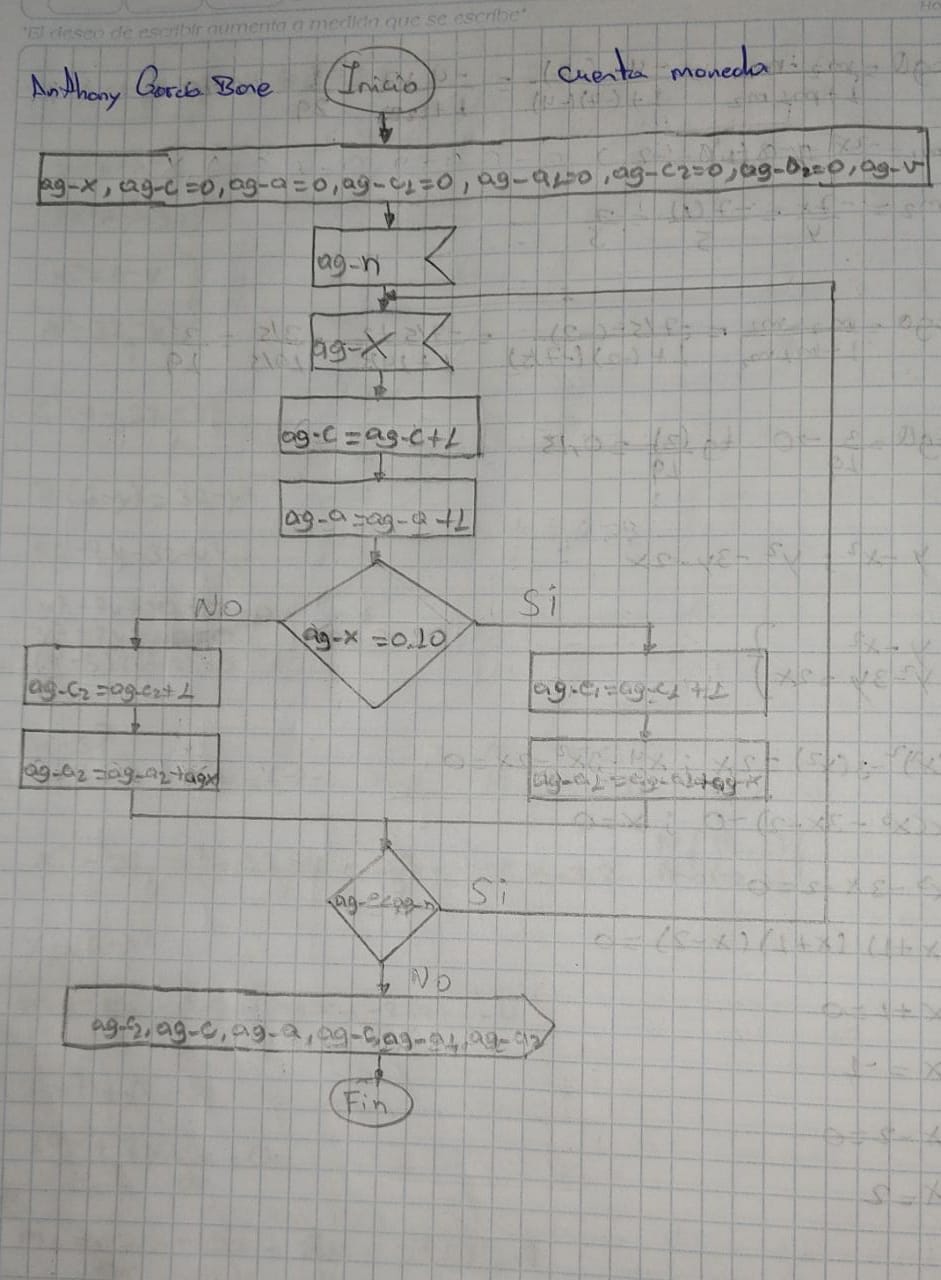 "El deseo de escribir aumenta a medida que se escribe"
Anthony García Bone
Inicio
cuenta moneda
ag-x, ag-c=0, ag-a=0, ag-c1=0, ag-a1=0, ag-c2=0, ag-a2=0, ag-n
ag-n
ag-x
ag-c=ag-c+1
ag-a=ag-a+1
NO
Si
ag-x =0.10
ag-c2=ag-c2+1
ag-c1=ag-c1+1
ag-a2=ag-a2+agx
ag-a1=ag-a1+ag-x
ag-c<ag-n
Si
NO
ag-c2, ag-c, ag-a, ag-c, ag-a1, ag-a2
Fin